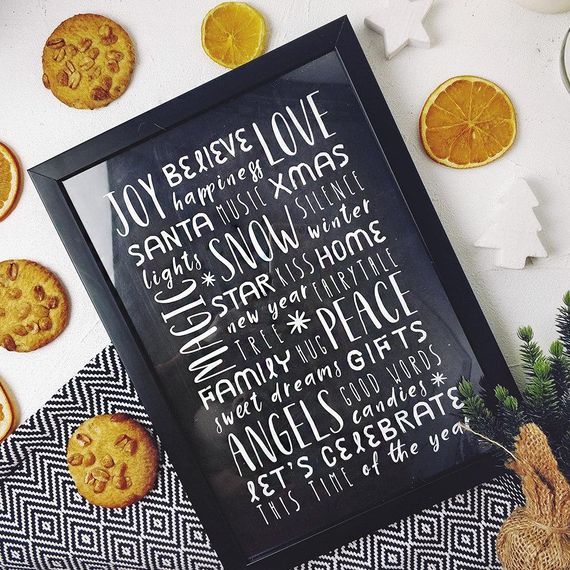 JOY BELIEVE LOVE
happiness
SANTA MUSIC XMAS
lights SNOW SILENCE
MAGIC STAR KISS winter
HOME
new year FAIRYTALE
TREE PEACE
FAMILY HUG GIFTS
sweet dreams GOOD WORDS
ANGELS candies
LET'S CELEBRATE
THIS TIME of the year